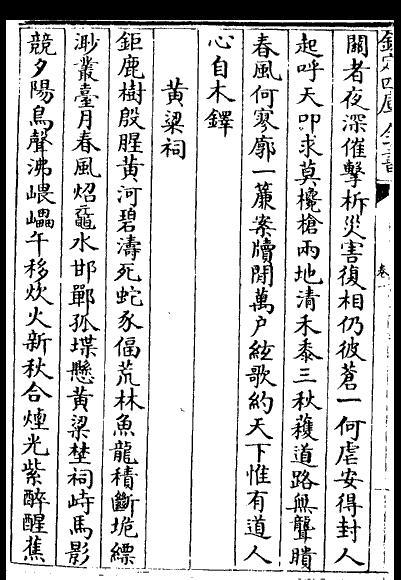 欽定四庫全書
卷
關者夜深催擊柝災害復相仍彼蒼一何虐安得封人
起呼天叩求莫欃槍兩地清禾黍三秋穫道路無聾瞶
春風何寥廓一簾案牘閒萬户絃歌約天下惟有道人
心自木鐸
黄粱祠
鉅鹿樹殷腥黄河碧濤死蛇豕偪荒林魚龍積斷垝縹
渺叢臺月春風炤水邯鄲孤堞懸黄粱埜祠峙馬影
競夕陽鳥聲沸嵔㠥午移炊火新秋合煙光紫醉醒蕉